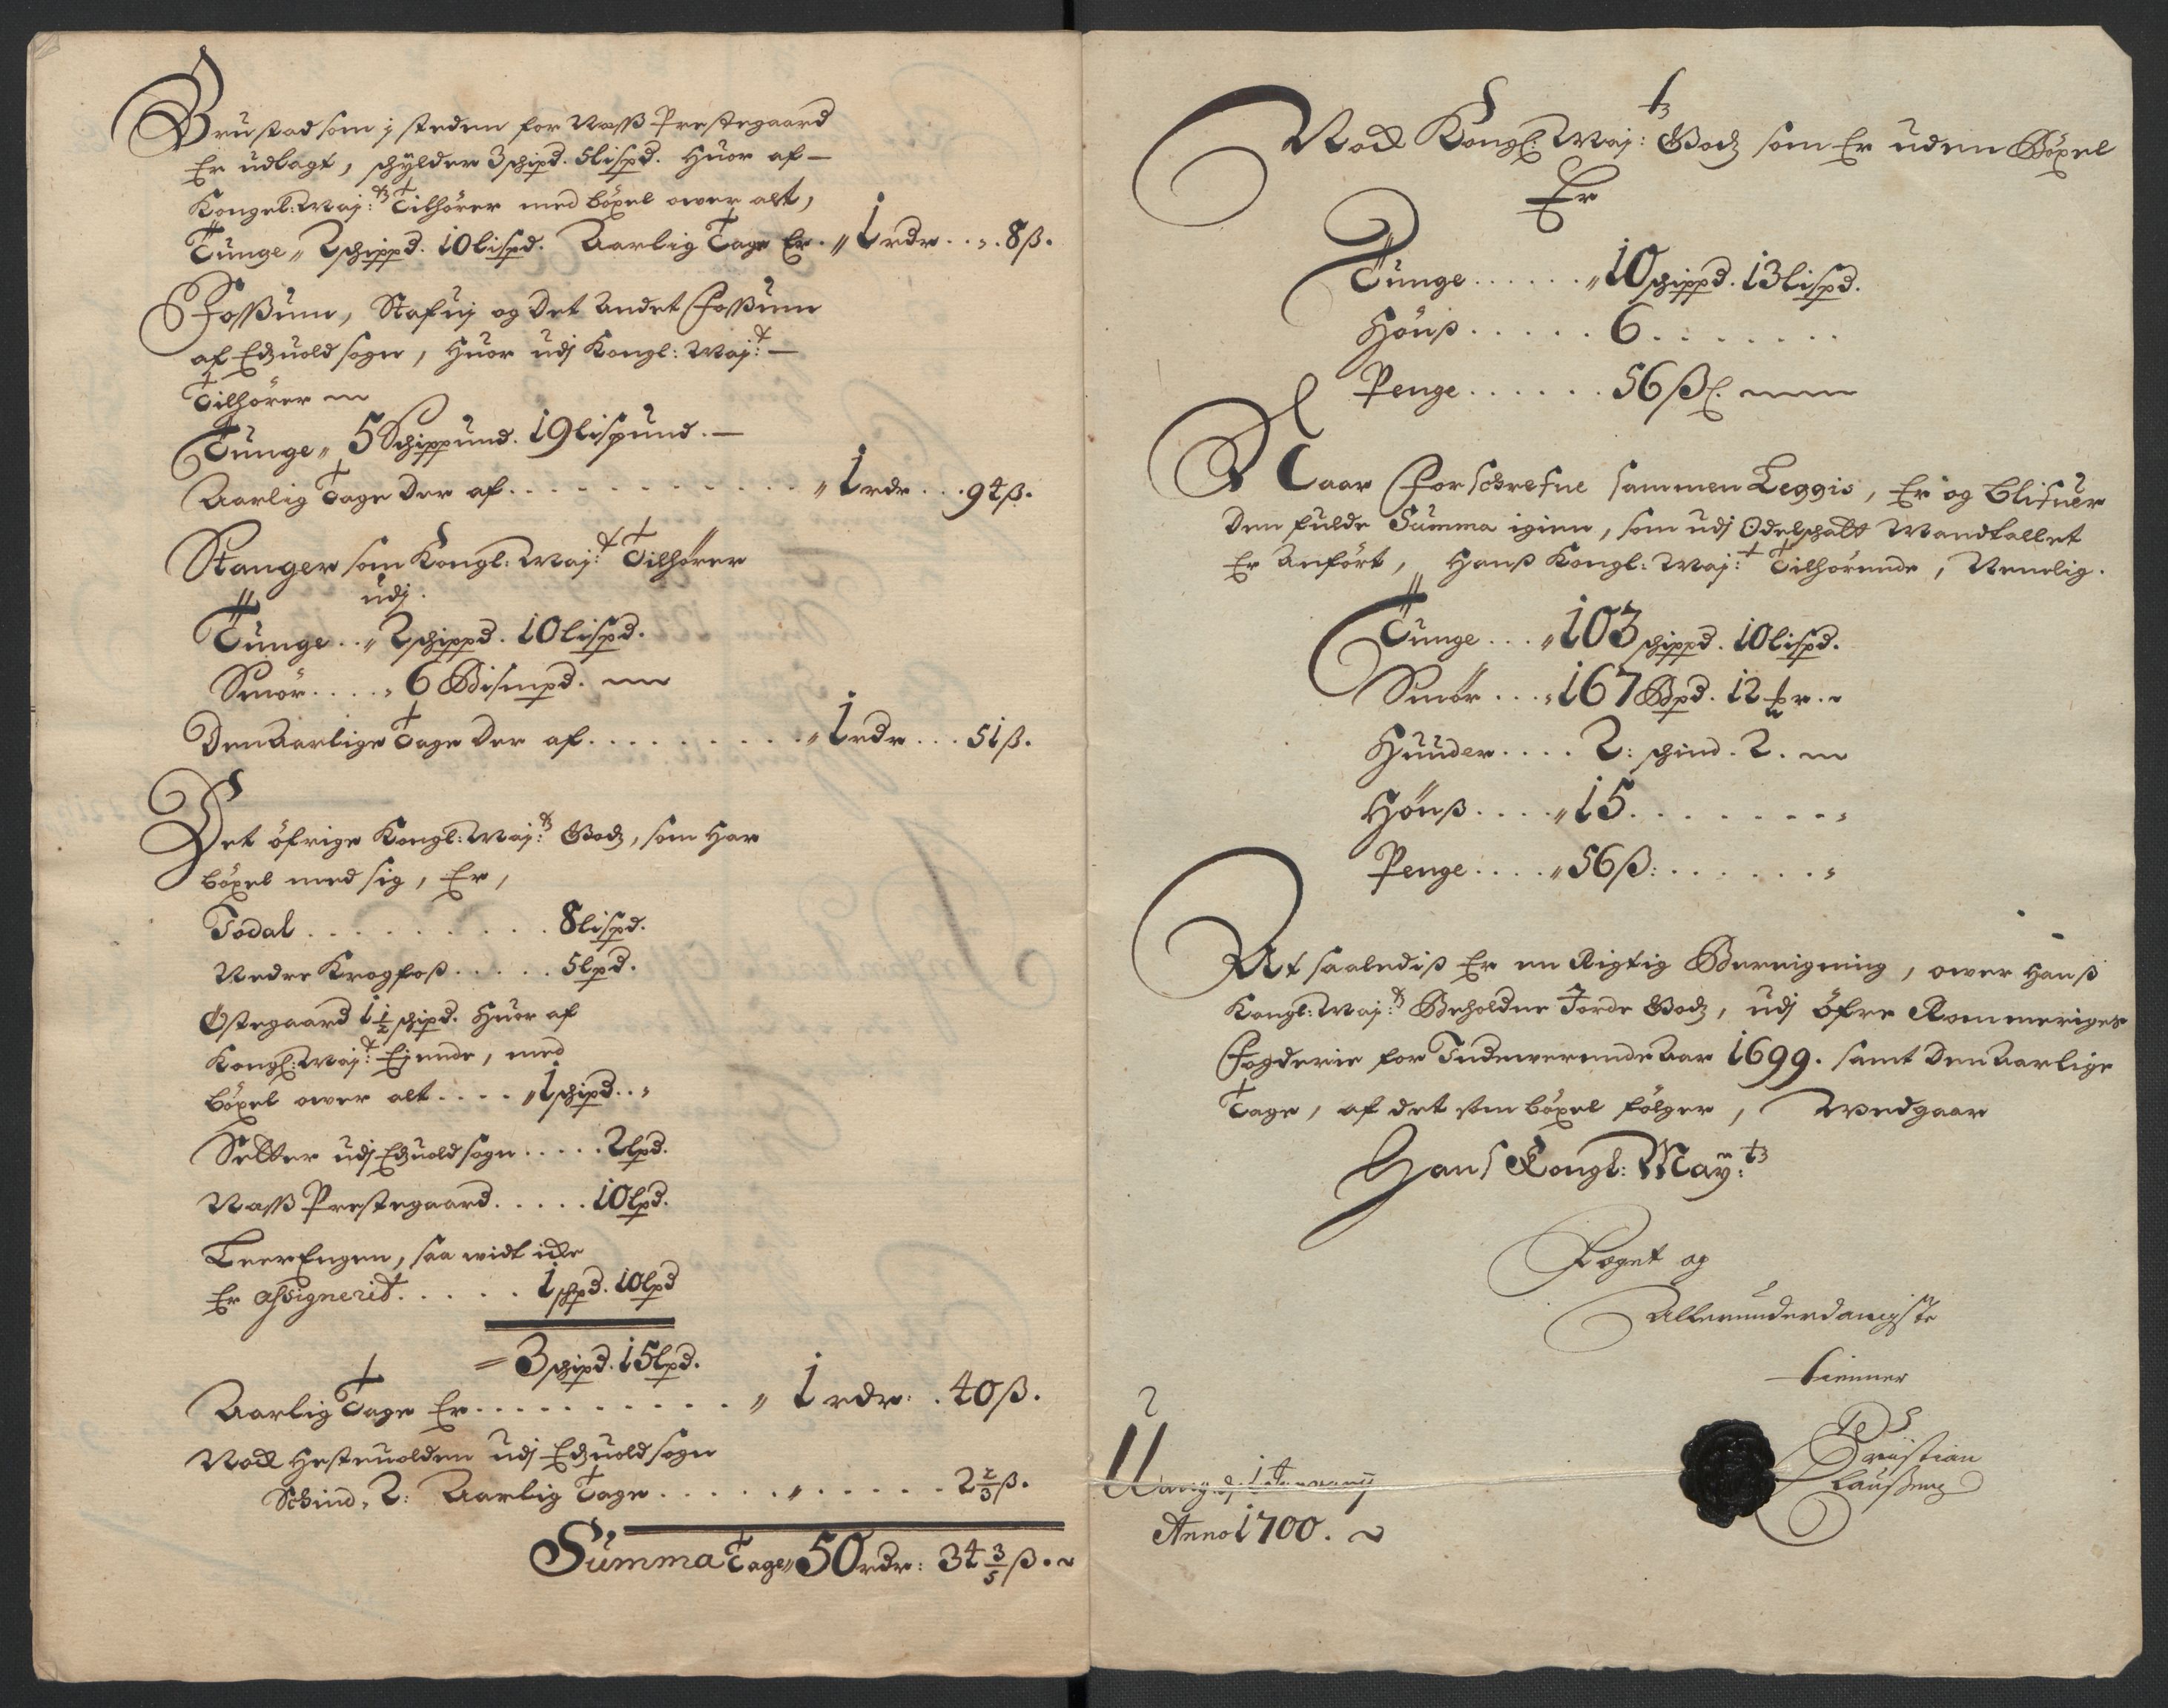 Brustad som j steden for Næss Prestegaard
Er udlagt, schylder 3 schipd. 5 lispd. Huor af —
Kongel: Maj:ts Tilhörer med böxel ower alt,
Tunge „ 2 schippd. 10 lispd. Aarlig Tage Er. „ 1 rdr . . „ . 8 ß.
Fossum, Nafui og Det Andet Fossum
af Edzuold sogn, Huor udj Kongl: Maj:t —
Tilhörer
Tunge „ 5 Schippund. 19 lispund. —
Aarlig Tage Der af . . . . . . . . . . . „ 1 rdr . . . 94 ß.
Stanger som Kongl: Maj:t Tilhörer
udj.
Tunge . . „ 2 schippd. 10 lispd.
Smör . . . . „ 6 Bismpd.
Den Aarlige Tage Der af . . . . . . . . . „ 1 rdr . . . 51 ß.
Det öfrige Kongl: Maj:ts Godz, som Har
böxel med sig, Er,
Todal . . . . . . . . . . 8 lispd.
Nedre Krogfoss . . . . . 5 lpd.
Östegaard 1 1/2 schipd. Huor af
Kongl: Maj:t Ejende, med
böxel ower alt . . . . „ 1 schipd . . „
Setter udj Edzuold sogn . . . . . 2 lpd.
Næss Prestegaard . . . . . 10 lpd.
Leer Engen, saa widt icke
Er assignerit . . . . . 1 schpd. 10 lpd
= 3 schipd. 15 lpd.
Aarlig Tage Er . . . . . . . . . . „ 1 rdr: . 40 ß.
Nock Hesteuolden udj Edzuold sogn
Schind, 2: Aarlig Tage . . . . . „ . . . . . 2 2/3 ß.
Summa Tage „ 50 rdr: 34 3/5 ß.
Nock Kongl: Maj:ts Godz som Er uden Böxel
Er
Tunge . . . . . . „ 10 schippd. 13 lispd.
Hönß . . . . . 6 . . . . . . .
Penge . . . . . . 56 ß.
Naar Forschrefne sammen Leggis, Er og blifuer
Den fulde Summa igien, som udj Odelschatt Mandtallet
Er Anfört, Hanß Kongl: Maj:t Tilhörende, Nemlig.
Tunge . . . „ 103 schippd. 10 lispd.
Smör . . . „ 167 Bpd. 12 mr.
Huuder . . . . 2: schind. 2.
Hönß . . . . „ 15 . . . . . . . . „
Penge . . . . „ 56 ß: . . . . . . „
At saaledis Er en Rigtig Beregning, ower Hanß
Kongl: Maj:ts Beholdne Jorde Godz, udj öfre Rommeriges
Fogderie for Indewerende Aar 1699. samt Den Aarlige
Tage, af det som böxel følger, Wedgaar
Hans Kongl: May:ts
Foget og
Allerunderdanigste
tienner
Christian
Anno 1700.